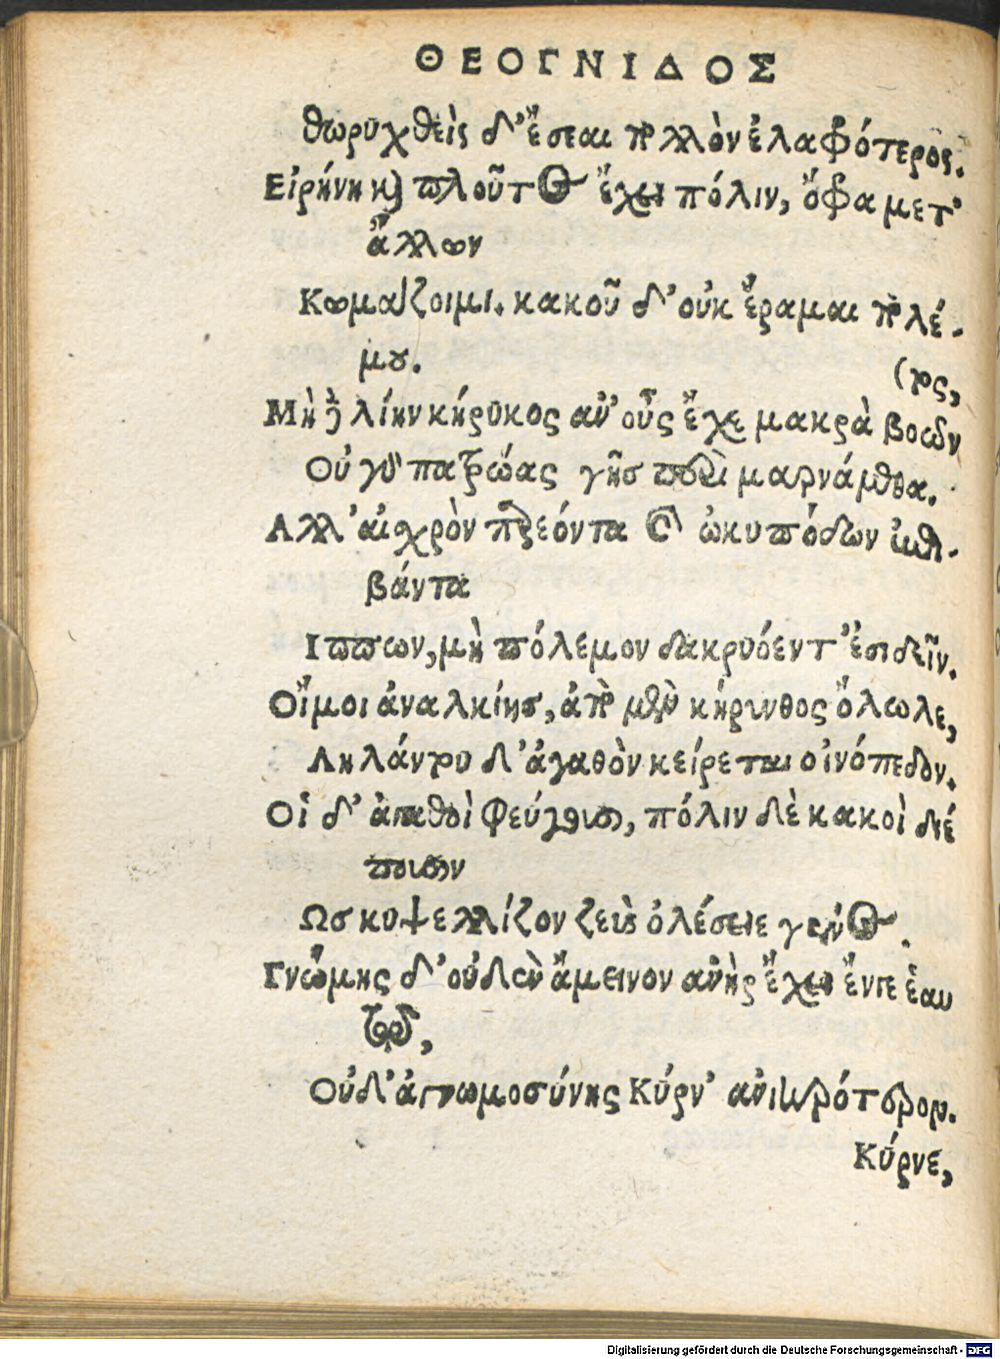 ΘΕΟΓΝΙΔΟΣ
θωρυχθεὶς δ' ἔσεαι πολλὸν ἐλαφρότερος.
Εἰρήνη καὶ πλοῦτος ἔχει πόλιν, ὄφρα μετ'
ἄλλων
Κωμάζοιμι. κακοῦ δ' οὐκ ἔραμαι πολέ-
μου.
(τος,
Μὴ δὲ λίην κήρυκος ἀν' οὖς ἔχε μακρὰ βοῶν
Οὐ γὰρ πατρώας γῆς περὶ μαρνάμεθα.
Αλλ' αἰσχρὸν παρεόντα καὶ ὠκυπόδων ἐπι-
βάντα
Ιππων, μὴ πόλεμον δακρυόεντ' ἐσιδεῖν.
Οἴμοι ἀναλκίης, ἀπὸ μὲν κήρινθος ὄλωλε,
Ληλάντου δ' ἀγαθὸν κείρεται οἰνόπεδον.
Οἱ δ' ἀγαθοὶ φεύγουσι, πόλιν δὲ κακοὶ διέ
πουσιν
Ως κυψελλίζον ζεὺς ὀλέσειε γένος.
Γνώμης δ' οὐδὲν ἄμεινον ἀνὴρ ἔχει ἔν γε ἑαυ
τῷ,
Οὐδ' ἀγνωμοσύνης Κύρν' ἀνιηρότερον.
Κύρνε,
Digitalisierung gefördert durch die Deutsche Forschungsgemeinschaft - DFG